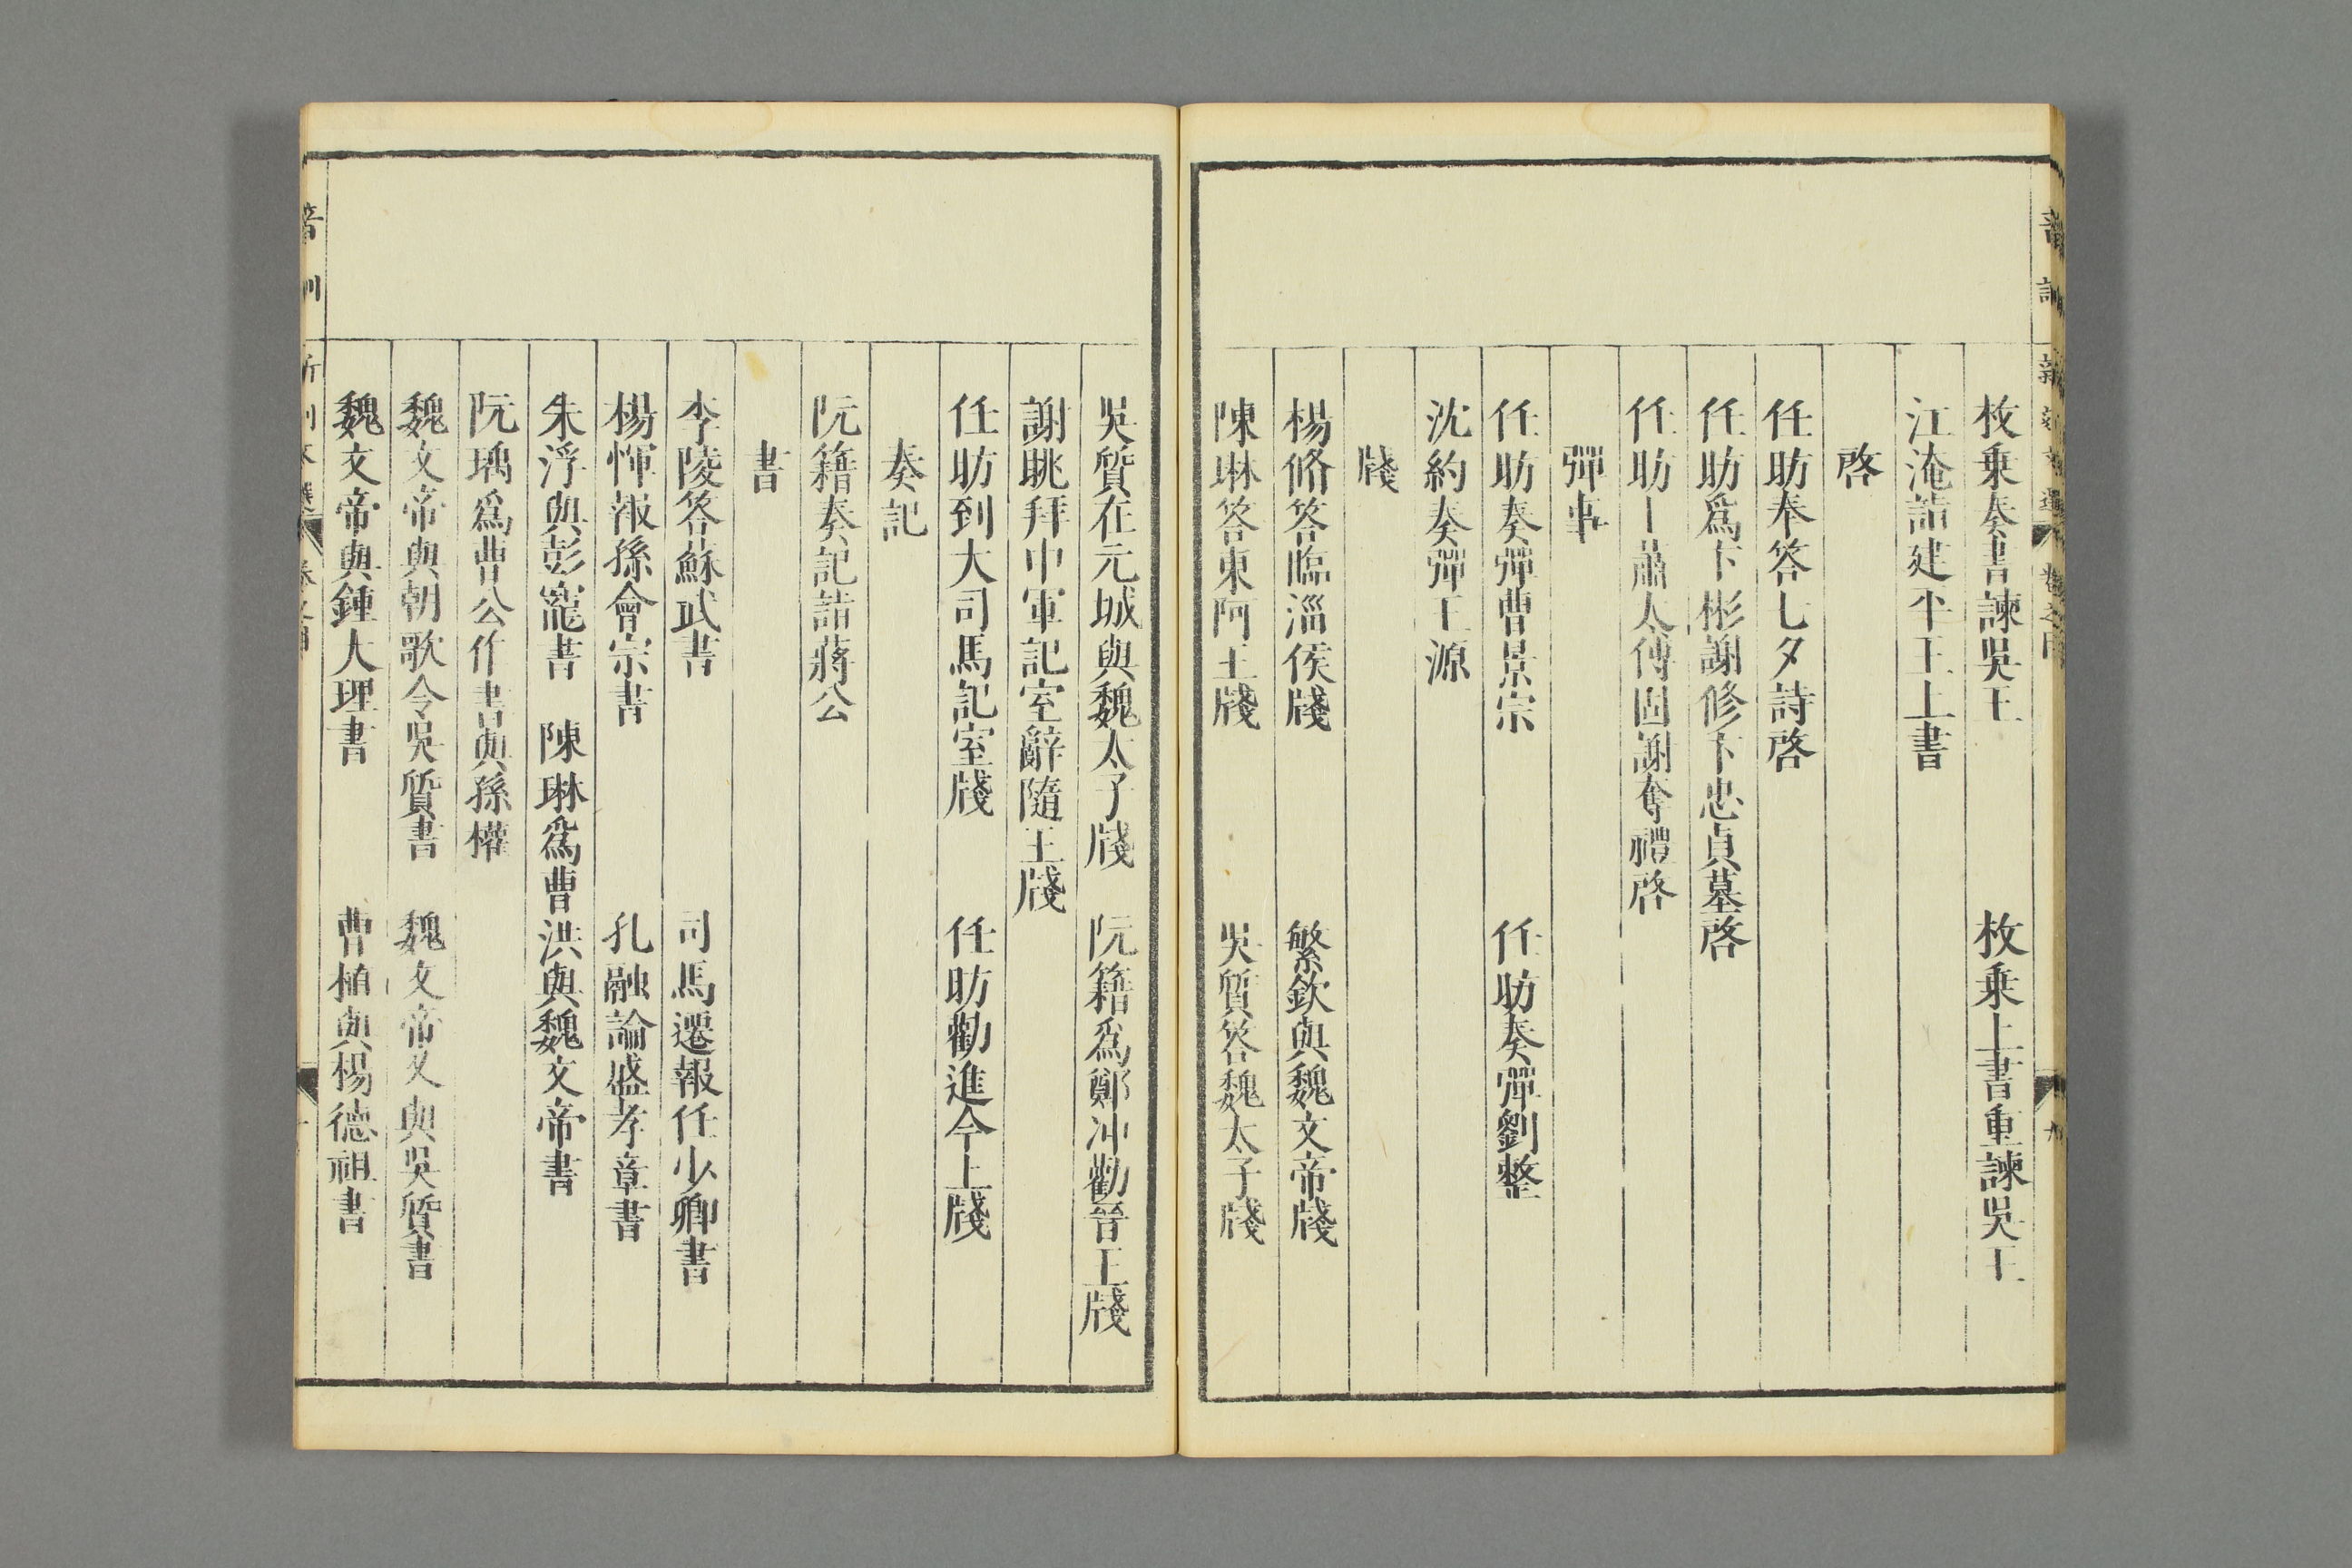 枚乗奏書諫吳王　枚乗上書重諫吳王
江淹詣建平王上書
啓
任昉奉答七夕詩啓
任昉爲卞彬謝修卞忠貞墓啓
任昉上蕭太傅固謝奪禮啓
彈事
任昉奏彈曹景宗　任昉奏彈劉整
沈約奏彈王源
牋
楊脩答臨淄侯牋　繁欽與魏文帝牋
陳琳答東阿王牋　吳質答魏太子牋
吳質在元城與魏太子牋　阮籍爲鄭沖勸晉王牋
謝眺拜中軍記室辭隨王牋
任昉到大司馬記室牋　任昉勸進今上牋
奏記
阮籍奏記詣蔣公
書
李陵答蘇武書　司馬遷報任少卿書
楊惲報孫會宗書　孔融論盛孝章書
朱浮與彭寵書　陳琳爲曹洪與魏文帝書
阮瑀爲曹公作書與孫權
魏文帝與朝歌令吳質書　魏文帝又與吳質書
魏文帝與鍾大理書　曹植與楊德祖書